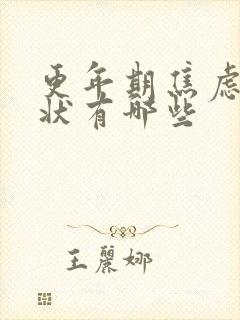 更年期焦虑
状有哪些
王麗娜